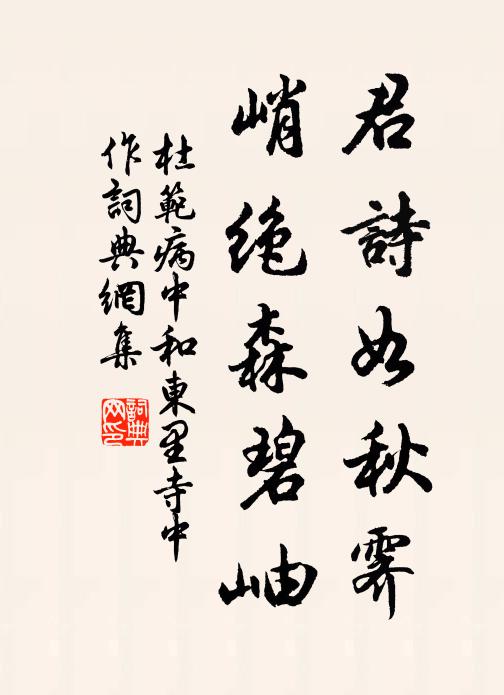 君詩如秋霽
峭絕森碧岫
杜範病中和東里寺中
作詞典網集
詞典
网印